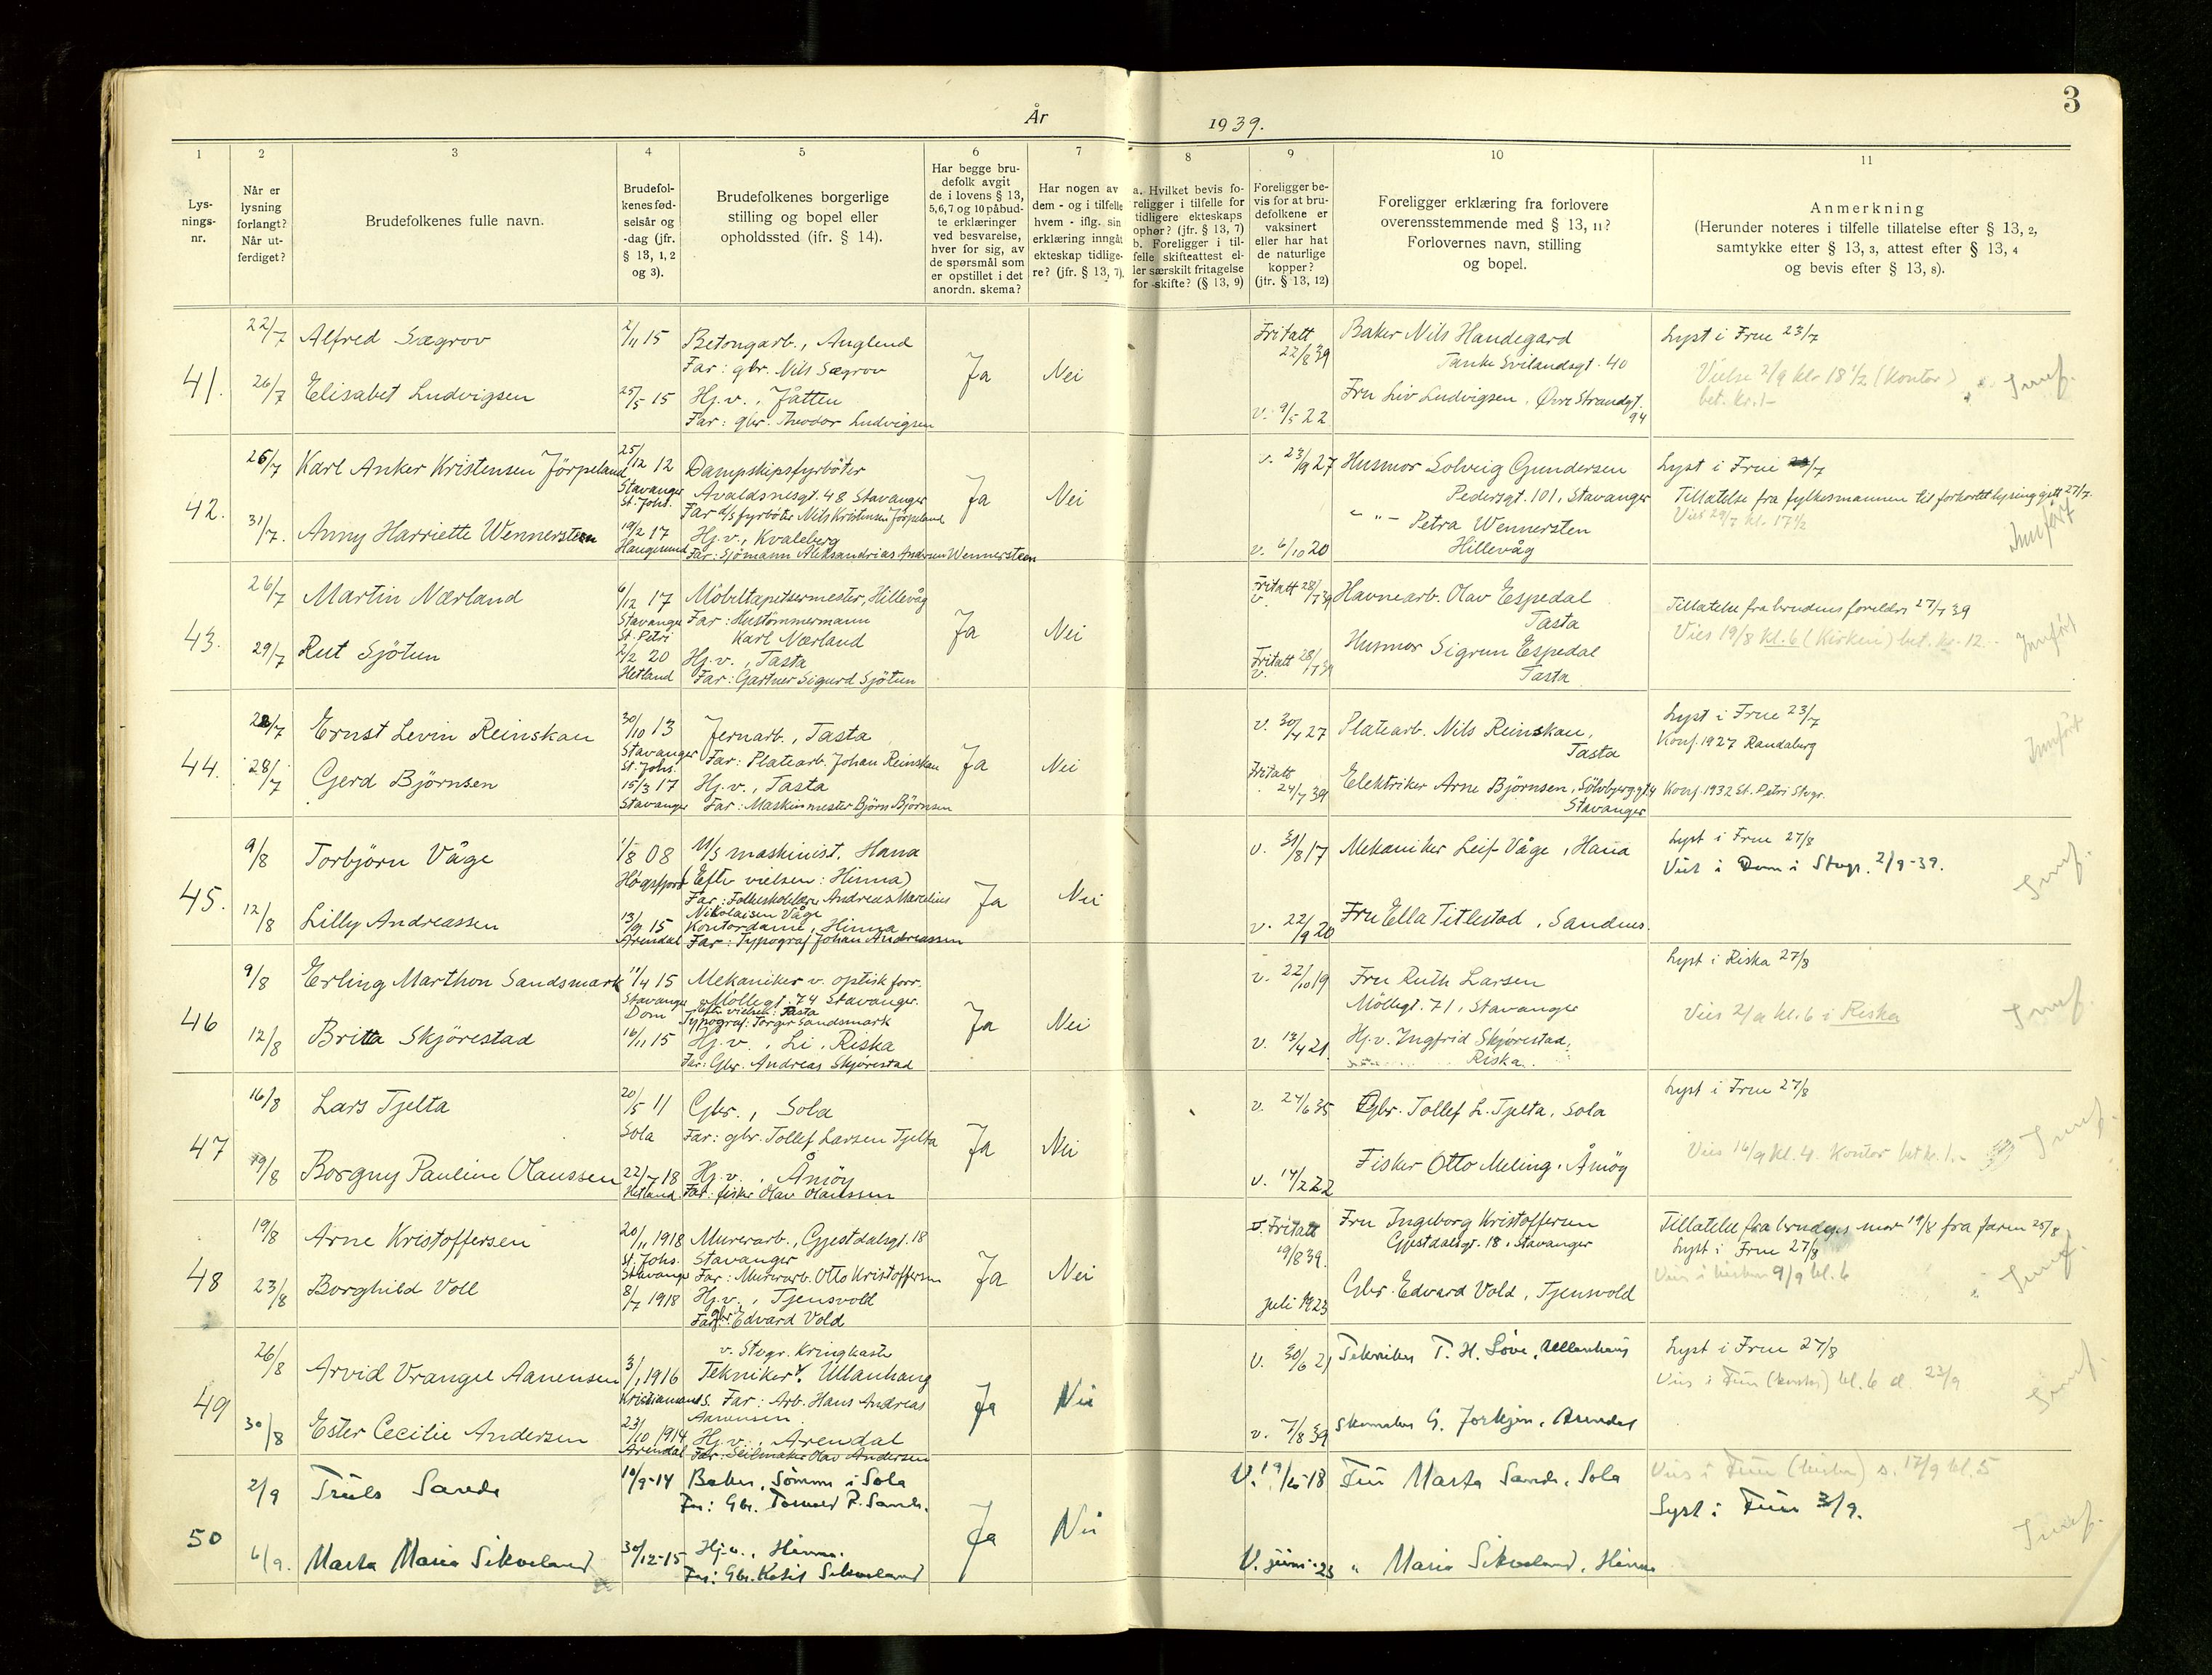 3
År 1939.
1 2 3 4 5 6 7 8 9 10 11
Lys-
nings-
nr.
Når er
lysning
forlangt?
Når ut-
ferdiget?
Brudefolkenes fulle navn.
Brudefol-
kenes fød-
selsår og
-dag (jfr.
§ 13, 1, 2
og 3).
Brudefolkenes borgerlige
stilling og bopel eller
opholdssted (jfr. § 14).
Har begge bru-
defolk avgit
de i lovens § 13,
5, 6, 7 og 10 påbud-
te erklæringer
ved besvarelse,
hver for sig, av
de spørsmål som
er opstillet i det
anordn. skema?
Har nogen av
dem - og i tilfelle
hvem - iflg. sin
erklæring inngåt
ekteskap tidlige-
re? (jfr. § 13, 7).
a. Hvilket bevis fo-
religger i tilfelle for
tidligere ekteskaps
ophør? (jfr. § 13, 7)
b. Foreligger i til-
felle skifteattest el-
ler særskilt fritagelse
for skifte? (§ 13, 9)
Foreligger be-
vis for at bru-
defolkene er
vaksinert
eller har hat
de naturlige
kopper?
(jfr. § 13, 12)
Foreligger erklæring fra forlovere
overensstemmende med § 13, 11?
Forlovernes navn, stilling
og bopel.
Anmerkning
(Herunder noteres i tilfelle tillatelse efter § 13, 2,
samtykke efter § 13, 3, attest efter § 13, 4
og bevis efter § 13, 8).
41.
22/7 Alfred Sægrov 2/11 15 Betongarb., Auglend
Far: gbr. Nils Sægrov
26/7 Elisabet Ludvigsen 25/5 15 Hj.v., Jåtten
Far: gbr. Theodor Ludvigsen
Ja Nei
Fritatt
22/8 39
v. 9/5 22
Baker Nils Handegard
Tanke Svilandsgt. 40
Fru Liv Ludvigsen, Øvre Strandgt.
94
Lyst i Frue 23/7
Vielse 2/9 kl. 18 1/2 (Kontor)
bet. kr. 1-
Innf.
42.
26/7 Karl Anker Kristensen Jörpeland 25/12 12 Dampskipsfyrböter
Stavanger
St. Johs.
Avaldsnesgt. 48 Stavanger
Far d/s fyrböter Nils Kristensen Jörpeland
31/7. Anny Harriette Wennersteen 19/2 17 Hj.v., Kvaleberg
Haugesund Far: Sjömann Aleksandrias Andersen Wennersteen
Ja Nei
v. 23/9 27
v. 6/10 20
Husmor Solveig Gundersen
Pedersgt. 101, Stavanger
" " - Petra Wennersten
Hillevåg
Lyst i Frue /7
Tillatelse fra fylkesmannen til forkortet lysing gitt 27/7.
Vies 29/7 kl. 17 1/2
Innført
43.
26/7 Martin Nærland 6/12 17 Möbeltapetsermester, Hillevåg
Stavanger
St. Petri
Far: Hustömmermann
Karl Nærland
29/7 Rut Sjötun 2/2 20 Hj.v., Tasta
Hetland Far: Gartner Sigurd Sjötun
Ja Nei
Fritatt 28/7 39
v.
Fritatt 28/7 39
v.
Havnearb. Olav Espedal
Tasta
Husmor Sigrun Espedal
Tasta
Tillatelse fra brudens foreldre 27/7 39
Vies 19/8 kl. 6 (Kirken) bet. kr. 12.-
Innført
44.
28/7 Ernst Levin Reinskau 30/10 13 Jernarb., Tasta
Stavanger
St. Johs.
Far: Platearb. Johan Reinskau
28/7 Gerd Björnsen 15/3 17 Hj.v., Tasta
Stavanger Far: Maskinmester Björn Björnsen
Ja Nei
v. 30/4 27
Fritatt
24/7 39
Platearb. Nils Reinskau,
Tasta
Elektriker Arne Björnsen, Sölvbjerggt. 4
Stavanger
Lyst i Frue 23/7
Konf. 1927 Randaberg
Konf. 1932 St. Petri Stvgr.
Innført
45.
9/8 Torbjörn Våge 1/8 08 M/S maskinist, Hana
Högsfjord (Efter vielsen: Hinna)
Far: Folkeskolelærer Andreas Marcelius
Nikolaisen Våge
12/8 Lilly Andreassen 13/9 15 Kontordame, Hinna
Arendal Far: Typograf Johan Andreassen
Ja Nei
v. 31/8 17
v. 22/9 20
Mekaniker Leif Våge, Hana
Fru Ella Titlestad, Sandnes.
Lyst i Frue 27/8
Viet i Dom i Stvgr. 2/9-39.
Innf.
46
9/8 Erling Marthon Sandsmark 11/4 15 Mekaniker v. optisk forr.
Stavanger
Dom
Möllegt. 74 Stavanger.
efter vielsen: Tasta
Typograf: Torger Sandsmark
12/8 Britta Skjörestad 16/11 15 Hj.v., Li, Riska
Far: Gbr. Andreas Skjörestad
Ja Nei
v. 22/10 19
v. 13/4 21.
Fru Ruth Larsen
Möllegt. 71, Stavanger
Hj.v. Ingfrid Skjörestad,
Riska.
Lyst i Riska 27/8
Vies 2/9 kl. 6 i Riska
Innf.
47
16/8 Lars Tjelta 20/5 11 Gbr., Sola
Sola Far: gbr. Tollef Larsen Tjelta
19/8 Borgny Pauline Olaussen 22/7 18 Hj.v., Åmöy
Hetland Far: fisker Olav Olaussen
Ja Nei
v. 24/6 35
v. 14/2 22
Gbr. Tollef L. Tjelta, Sola
Fisker Otto Meling, Åmöy
Lyst i Frue 27/8
Vies 16/9 kl. 4. Kontor bet kr. 1.-
Innf.
48
19/8 Arne Kristoffersen 20/11 1918 Murerarb., Gjestdalsgt. 18
St. Johs.
Stavanger
Stavanger
Far: Murerarb. Otto Kristoffersen
23/8 Borghild Voll 8/7 1918 Hj.v., Tjensvold
Far: gbr. Edvard Vold
Ja Nei
v. Fritatt
19/8 39.
juli 1923
Fru Ingeborg Kristoffersen
Gjestdalsgt. 18, Stavanger
Gbr. Edvard Vold, Tjensvold
Tillatelse fra brudgs mor 19/8 fra faren 25/8
Lyst i Frue 27/8
Vies i kirken 9/9 kl. 6
Innf.
49
26/8 Arvid Vrangel Aanensen 3/1 1916 v. Stvgr. Kringkaster
Tekniker, Ullanhaug
Kristiansand S. Far: Arb. Hans Andreas
Aanensen.
30/8 Ester Cecilie Andersen 23/10 1914 Hj.v., Arendal
Arendal Far: Seilmaker Olav Andersen
Ja Nei
v. 30/6 21
v. 7/8 39
Tekniker T. H. Löve, Ullanhaug
Skomaker G. , Arendal
Lyst i Frue 27/8
Vies i Frue (kirken) kl. 6 d. 23/9
Innf.
50
2/9 Truls Sande 10/9-14 Baker, Sömme i Sola
Far: Gbr. P. Sande.
6/9. Marta Marie Sikveland 30/12-15 Hj.v., Hinna.
Far: Gbr. Ketil Sikveland
Ja Nei
V. 19/10-18
V. juni-23
Fru Marta Sande, Sola
" Marie Sikveland, Hinna
Vies i Frue (kirken) s. 17/9 kl. 5
Lyst i Frue 3/9.
Innf.